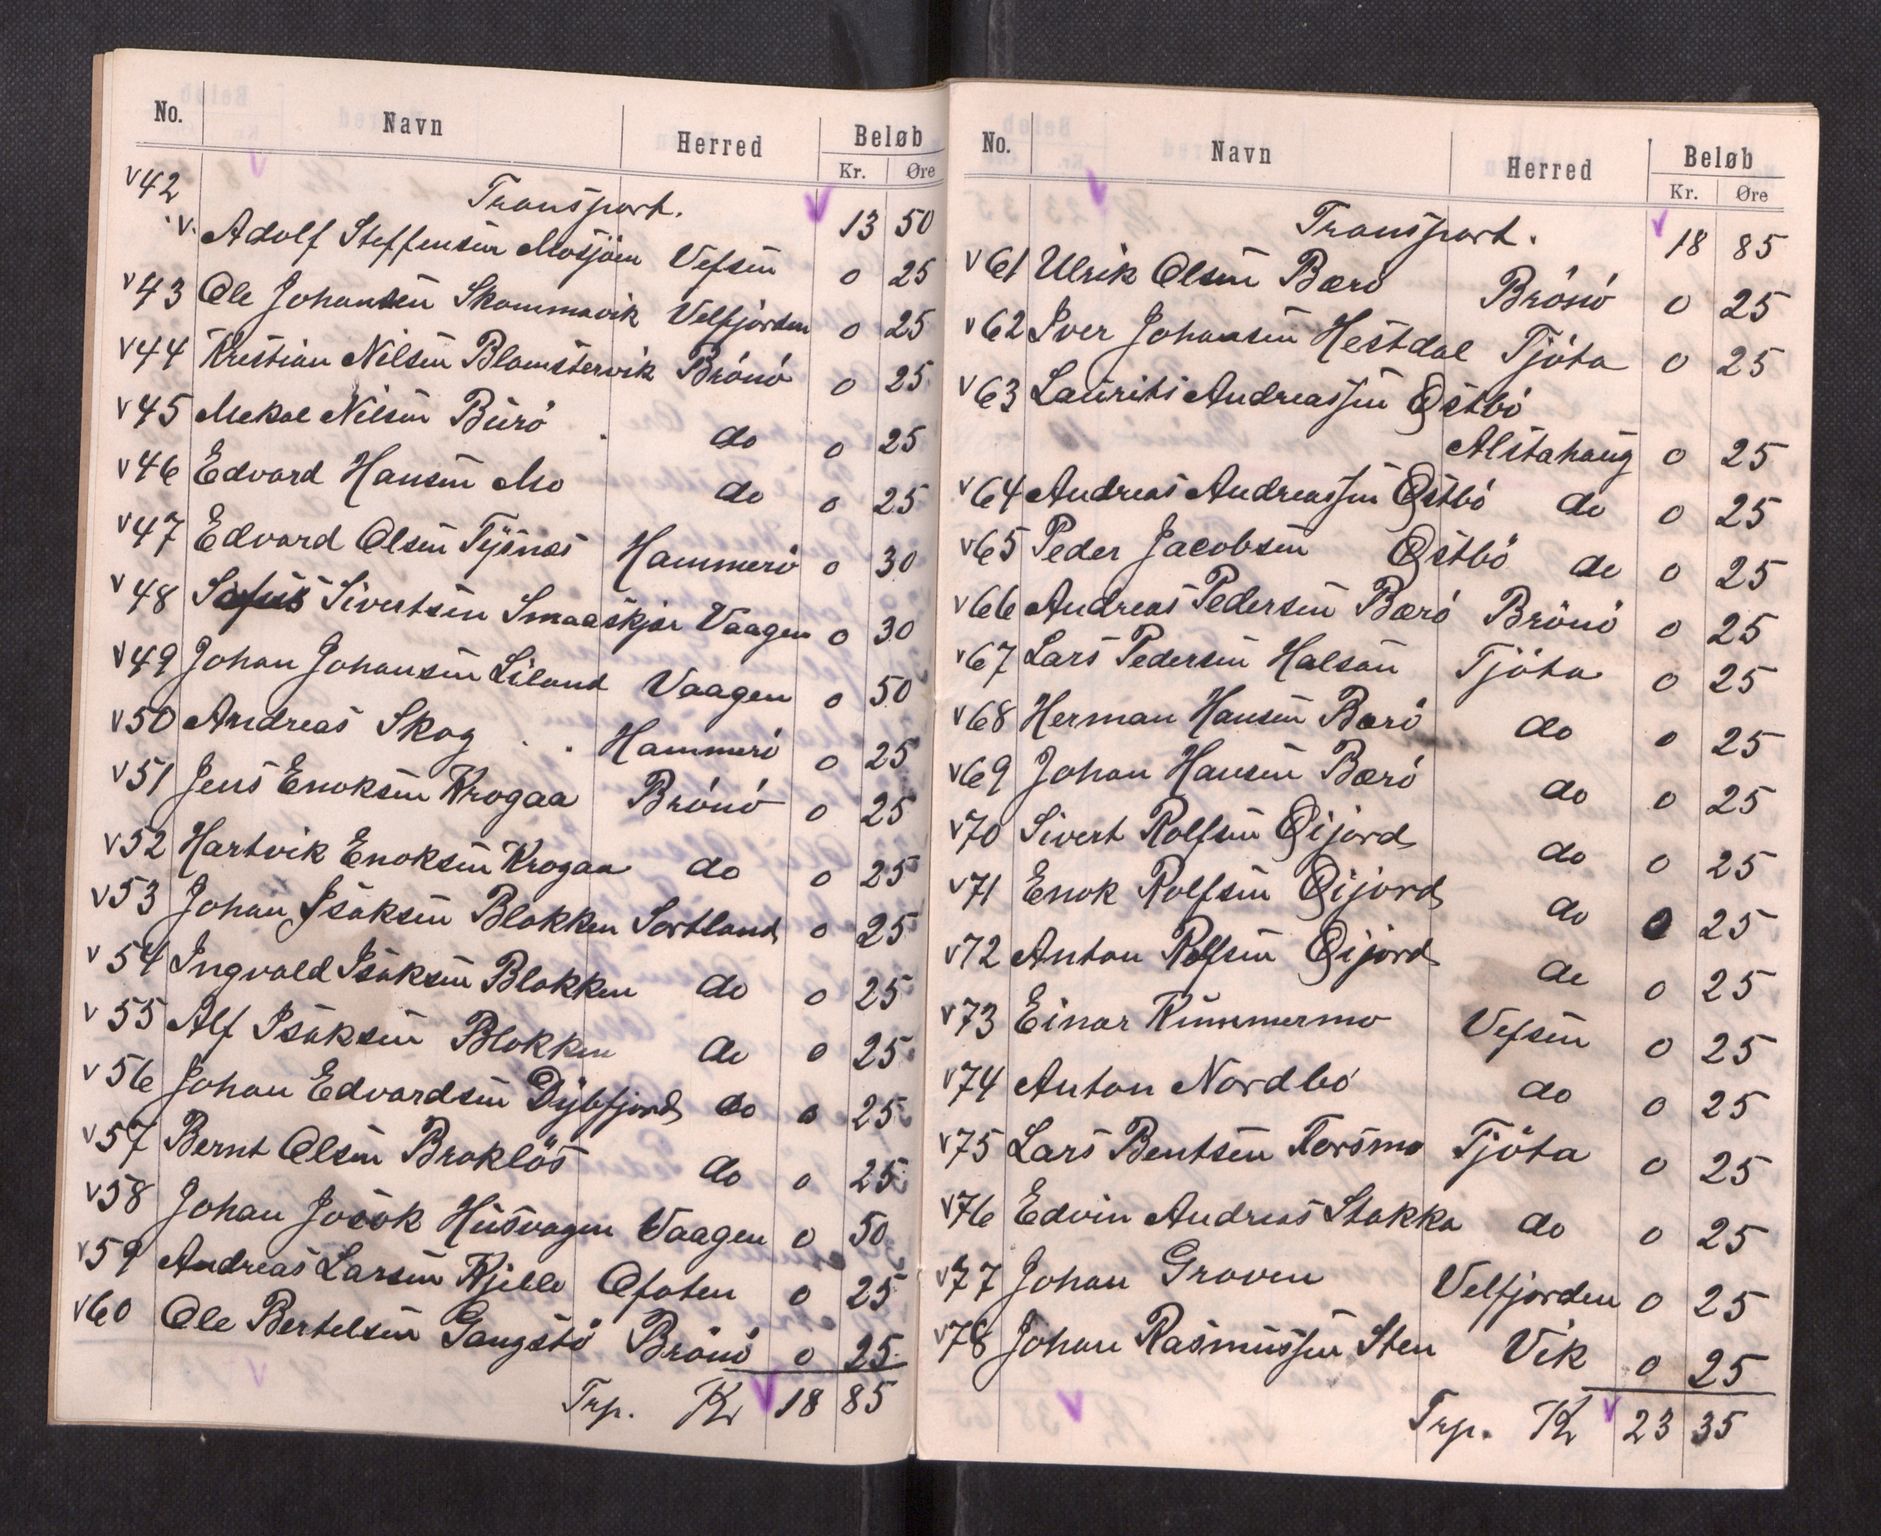 No. Navn Herred Beløb
Kr. Øre
Transport. 13 50
v42 v. Adolf Steffensen Mosjöen Vefsen 0 25
v43 Ole Johansen Skommovik Velfjorden 0 25
v44 Kristian Nilsen Blomstervik Brönö 0 25
v45 Mekal Nilsen Burö do 0 25
v46 Edvard Hansen Mo do 0 25
v47 Edvard Olsen Tysnes Hammerö 0 30
v48 Sofus Sivertsen Smaaskjær Vaagen 0 30
v49 Johan Johansen Liland Vaagen 0 50
v50 Andreas Skog Hammerö 0 25
v51 Jens Enoksen Krogaa Brönö 0 25
v52 Hartvik Enoksen Krogaa do 0 25
v53 Johan Isaksen Blokken Sortland 0 25
v54 Ingvald Isaksen Blokken do 0 25
v55 Alf Isaksen Blokken do 0 25
v56 Johan Edvardsen Dybfjord do 0 25
v57 Bernt Olsen Brokløs do 0 25
v58 Johan Josok Husvagen Vaagen 0 50
v59 Andreas Larsen Kjelle Ofoten 0 25
v60 Ole Bertelsen Gangstö Brönö 0 25
Trp. Kr 18 85
No. Navn Herred Beløb
Kr. Øre
Transport. 18 85
v61 Ulrik Olsen Bærö Brönö 0 25
v62 Iver Johansen Hestdal Tjöta 0 25
v63 Laurits Andreassen Østbö
Alstahaug 0 25
v64 Andreas Andreassen Østbö do 0 25
v65 Peder Jacobsen Østbö do 0 25
v66 Andreas Pedersen Bærö Brönö 0 25
v67 Lars Pedersen Halsan Tjöta 0 25
v68 Herman Hansen Bærö do 0 25
v69 Johan Hansen Bærö do 0 25
v70 Sivert Rolfsen Øijord do 0 25
v71 Enok Rolfsen Øijord do 0 25
v72 Anton Rolfsen Øijord do 0 25
v73 Einar Kummermo Vefsen 0 25
v74 Anton Nordbö do 0 25
v75 Lars Bentsen Forsmo Tjöta 0 25
v76 Edvin Andreas Stokka do 0 25
v77 Johan Groven Velfjorden 0 25
v78 Johan Rasmussen Sten Vik 0 25
Trp. Kr 23 35